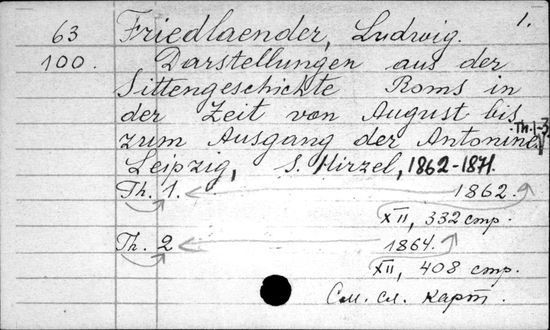 1.
63 Friedlaender, Ludwig.
100. Darstellungen aus der
Sittengeschichte Roms in
der Zeit von August bis
zum Ausgang der Antonine. Th. 1-3
Leipzig, S. Hirzel, 1862-1871.
Th. 1. 1862.
XII, 332 стр.
Th. 2 1864.
XII, 408 стр.
См. сл. карт.